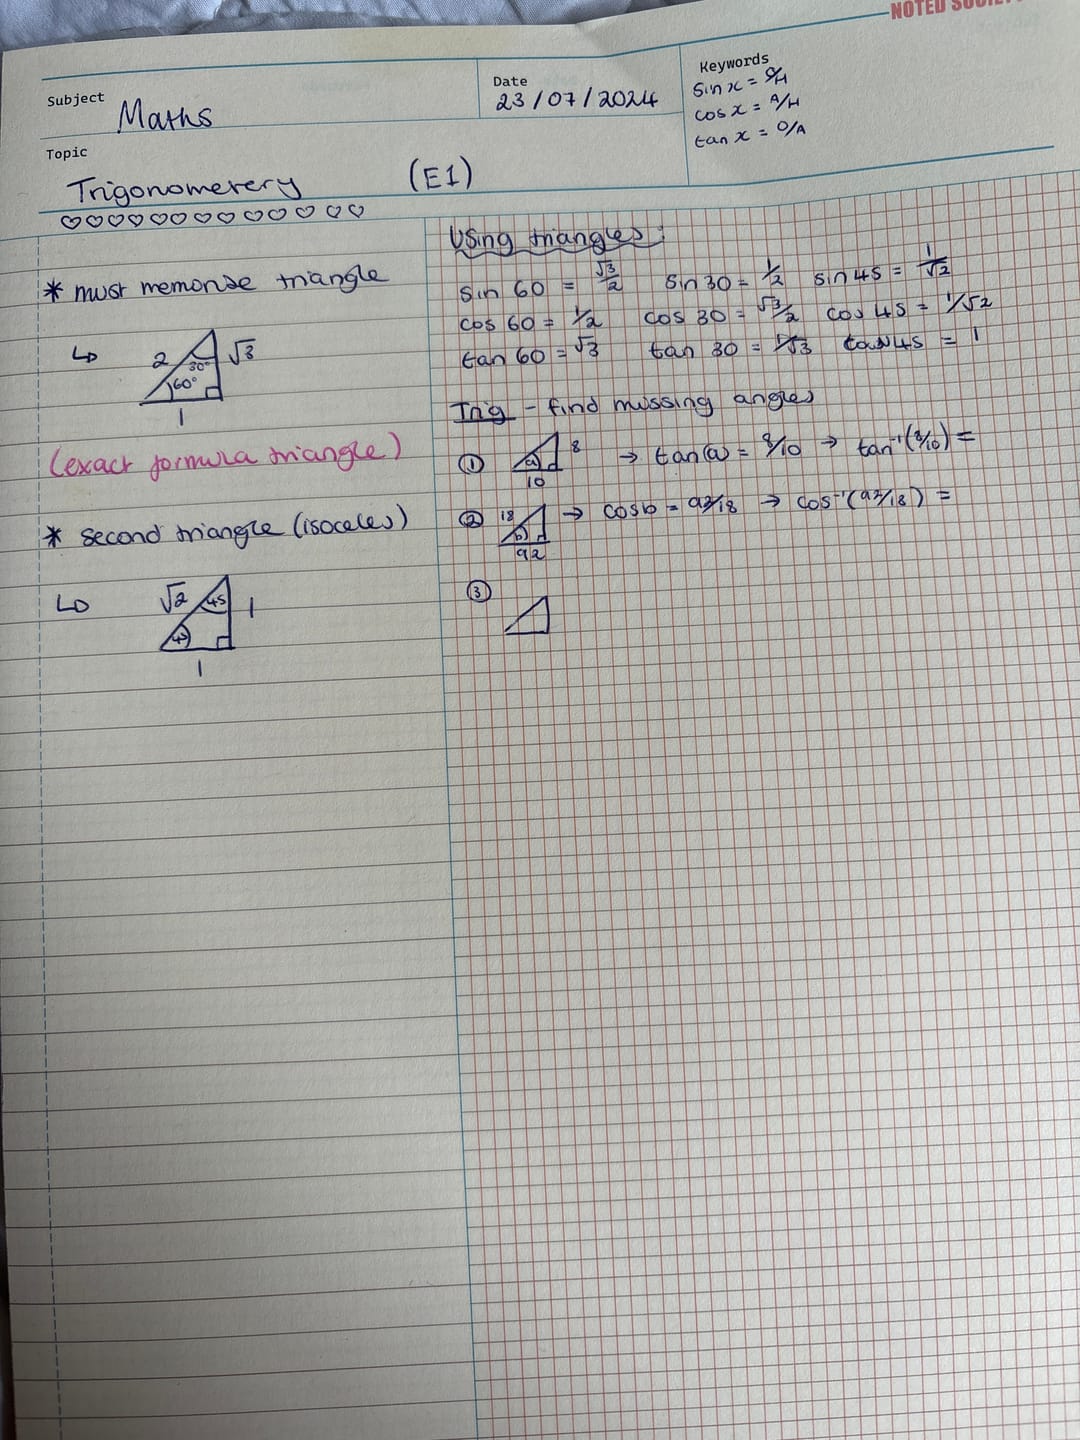 NOTED
Subject Maths
Date
23/07/2024
Keywords
Sin x = O/H
cos x = A/H
tan x = O/A
Topic
Trigonomerery (E1)
♡♡♡♡♡♡♡♡♡♡♡♡♡♡
* must memorise triangle
↳ 2 30° √3
60°
1
(exact formula triangle)
* second triangle (isoceles)
↳ √2 45 1
45
1
Using triangles:
sin 60 = √3/2 sin 30 = 1/2 sin 45 = 1/√2
cos 60 = 1/2 cos 30 = √3/2 cos 45 = 1/√2
tan 60 = √3 tan 30 = 1/√3 tan 45 = 1
Trig - find missing angles
① a 8 10 → tan(a) = 8/10 → tan⁻¹(8/10) =
② 18 b 92 → cos b = 92/18 → cos⁻¹(92/18) =
③